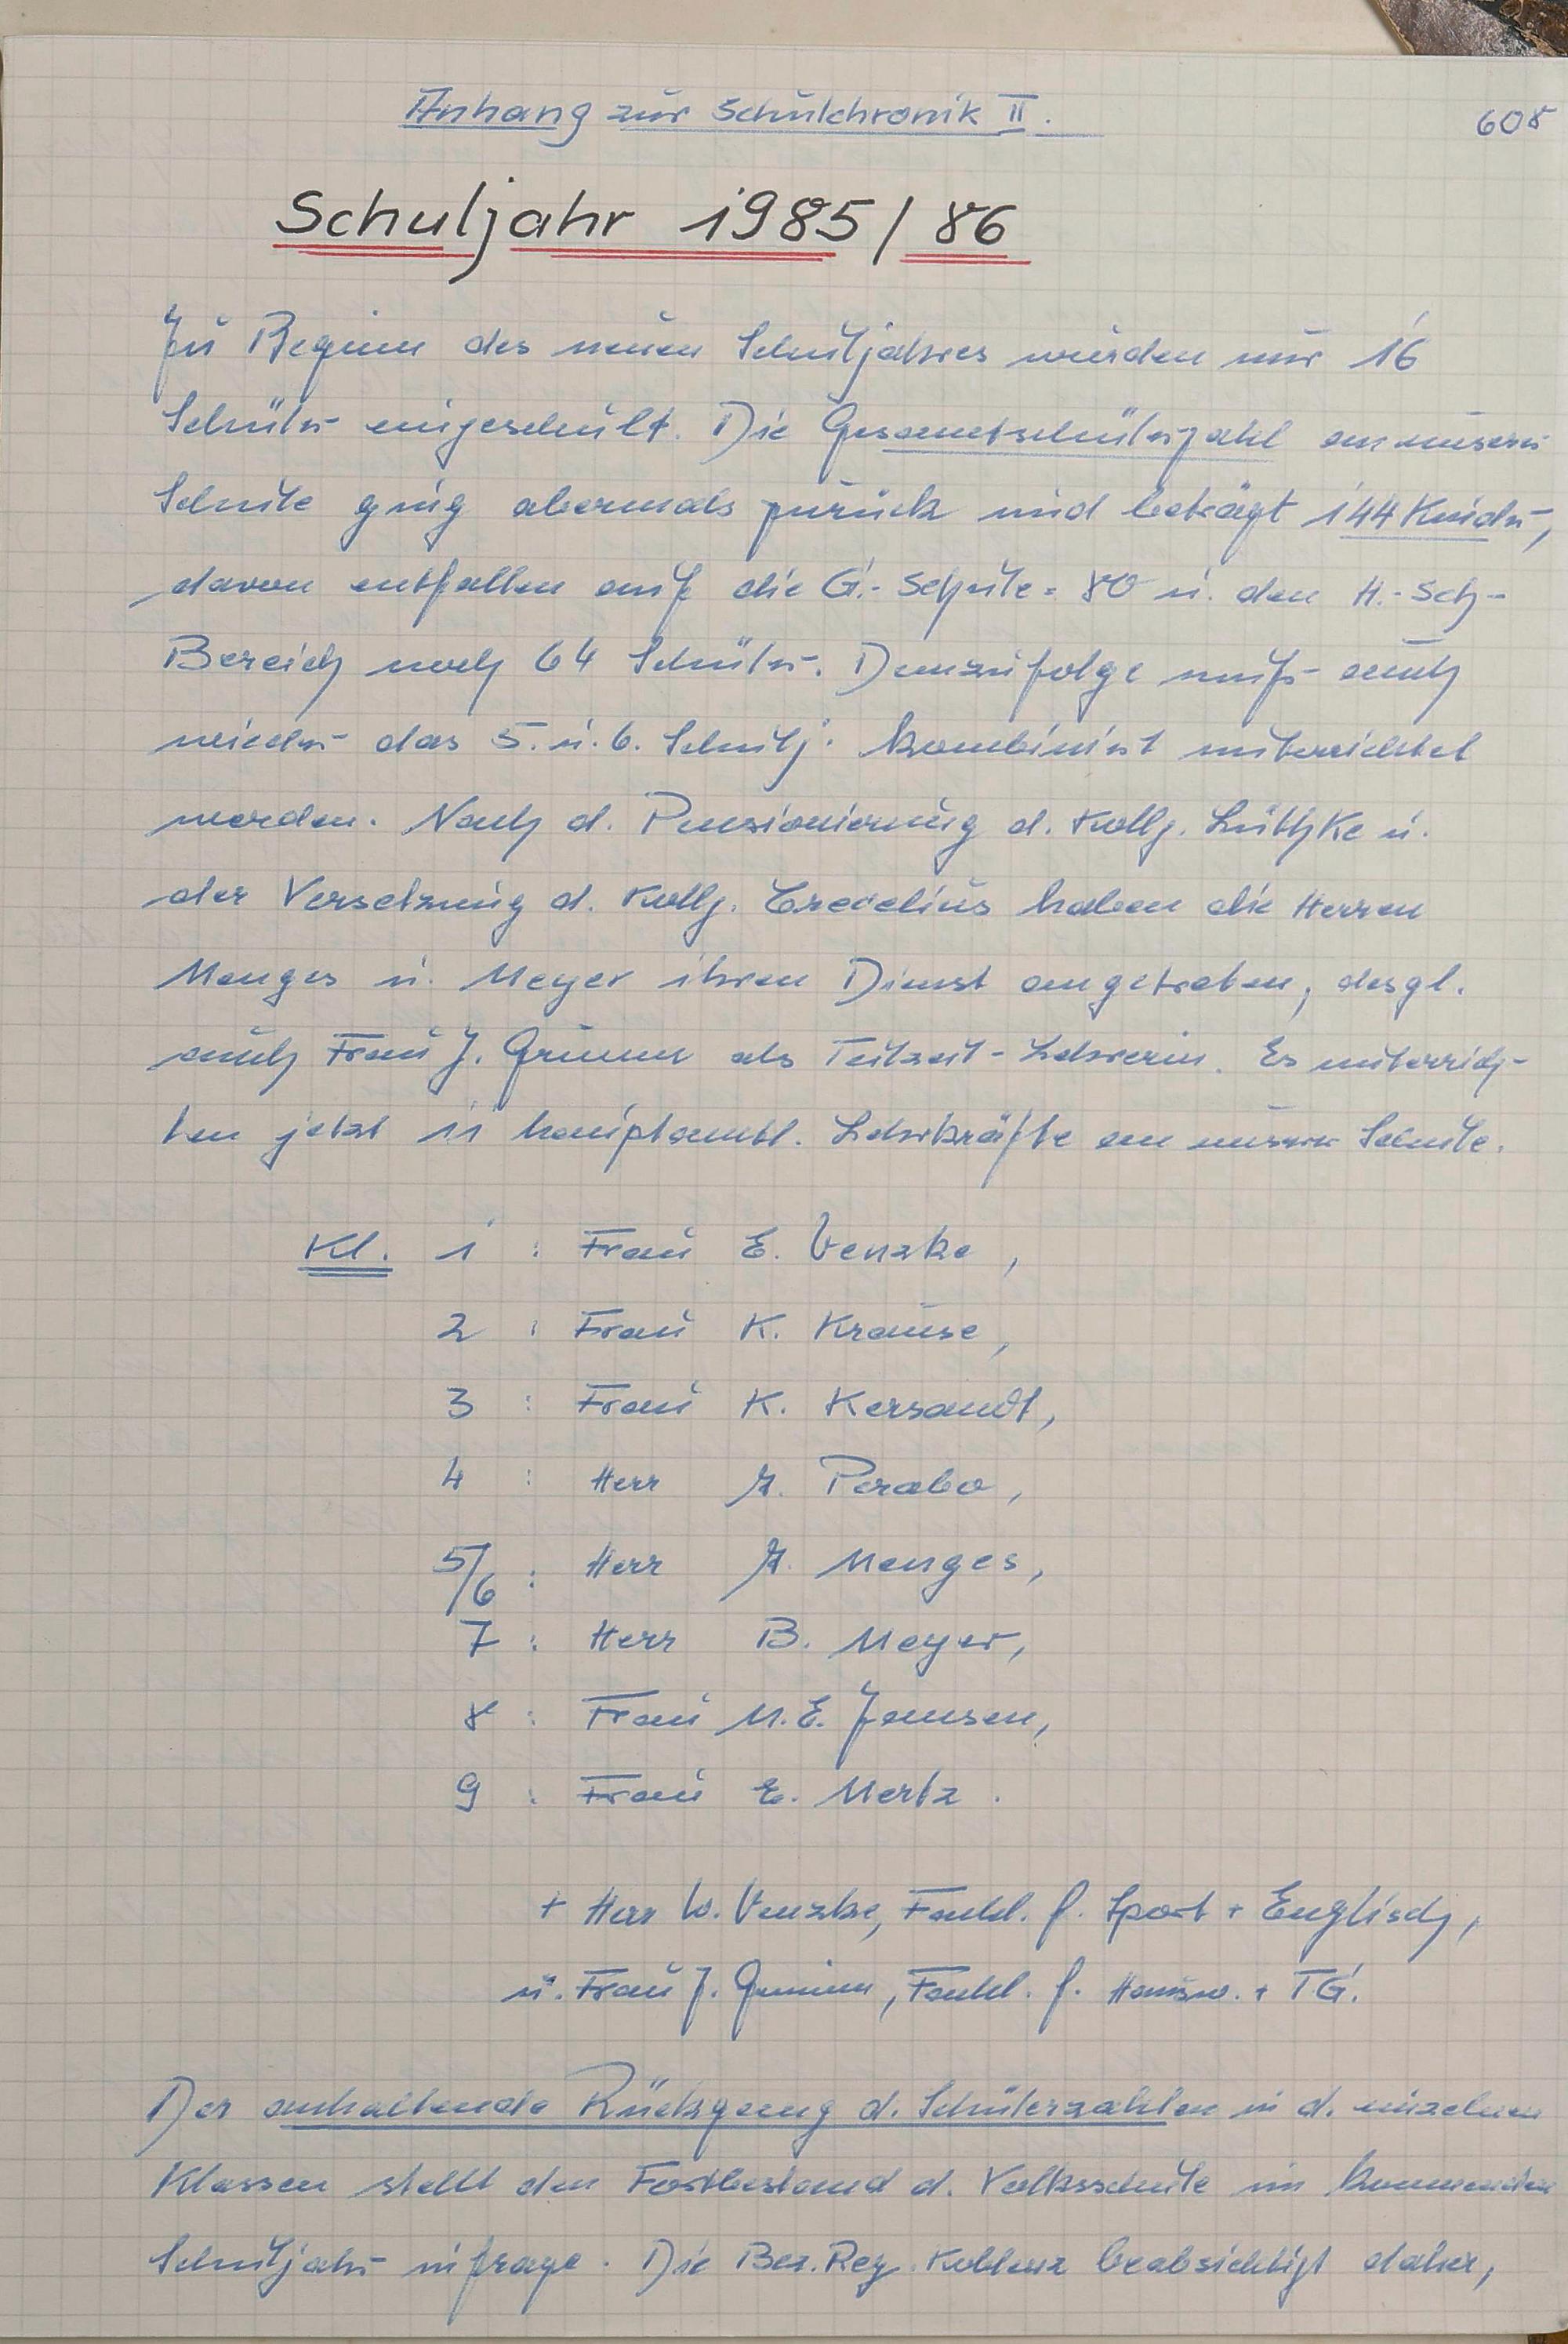 Anhang zur Schulchronik II.
608
Schuljahr 1985/86
Zu Beginn des neuen Schuljahres wurden nur 16
Schüler eingeschult. Die Gesamtschülerzahl an unserer
Schule ging abermals zurück und beträgt 144 Kinder,
davon entfallen auf die G.-Schule = 80 u. den H.-Sch-
Bereich noch 64 Schüler. Demzufolge muß auch
wieder das 5. u. 6. Schulj. kombiniert unterrichtet
werden. Nach d. Pensionierung d. Kollg. Lüthke u.
der Versetzung d. Kollg. Crecelius haben die Herren
Menges u. Meyer ihren Dienst angetreten, desgl.
auch Frau J. Grimm als Teilzeit-Lehrerin. Es unterrich-
ten jetzt 11 hauptamtl. Lehrkräfte an unserer Schule.
Kl. 1 : Frau E. Venzke,
2 : Frau K. Krause,
3 : Frau K. Kersandt,
4 : Herr H. Perabo,
5/6 : Herr H. Menges,
7 : Herr B. Meyer,
8 : Frau M.E. Jansen,
9 : Frau E. Mertz.
+ Herr W. Venzke, Fachl. f. Sport + Englisch,
u. Frau J. Grimm, Fachl. f. Hausw. + TG.
Der anhaltende Rückgang d. Schülerzahlen in d. einzelnen
Klassen stellt den Fortbestand d. Volksschule im kommenden
Schuljahr infrage. Die Bez.Reg. Koblenz beabsichtigt daher,